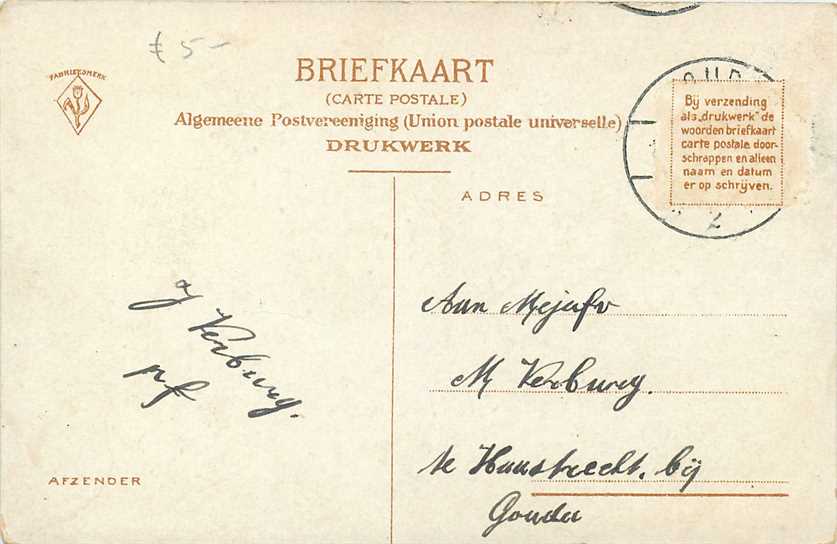 £ 5-
FABRIEKSMERK
BRIEFKAART
(CARTE POSTALE)
Algemeene Postvereeniging (Union postale universelle)
DRUKWERK
Bij verzending
als „drukwerk" de
woorden briefkaart
carte postale door-
schrappen en alleen
naam en datum
er op schrijven.
2
ADRES
Aan Mejufv
M Verburg.
te Haastrecht. bij
Gouda
J Verburg.
pf
AFZENDER